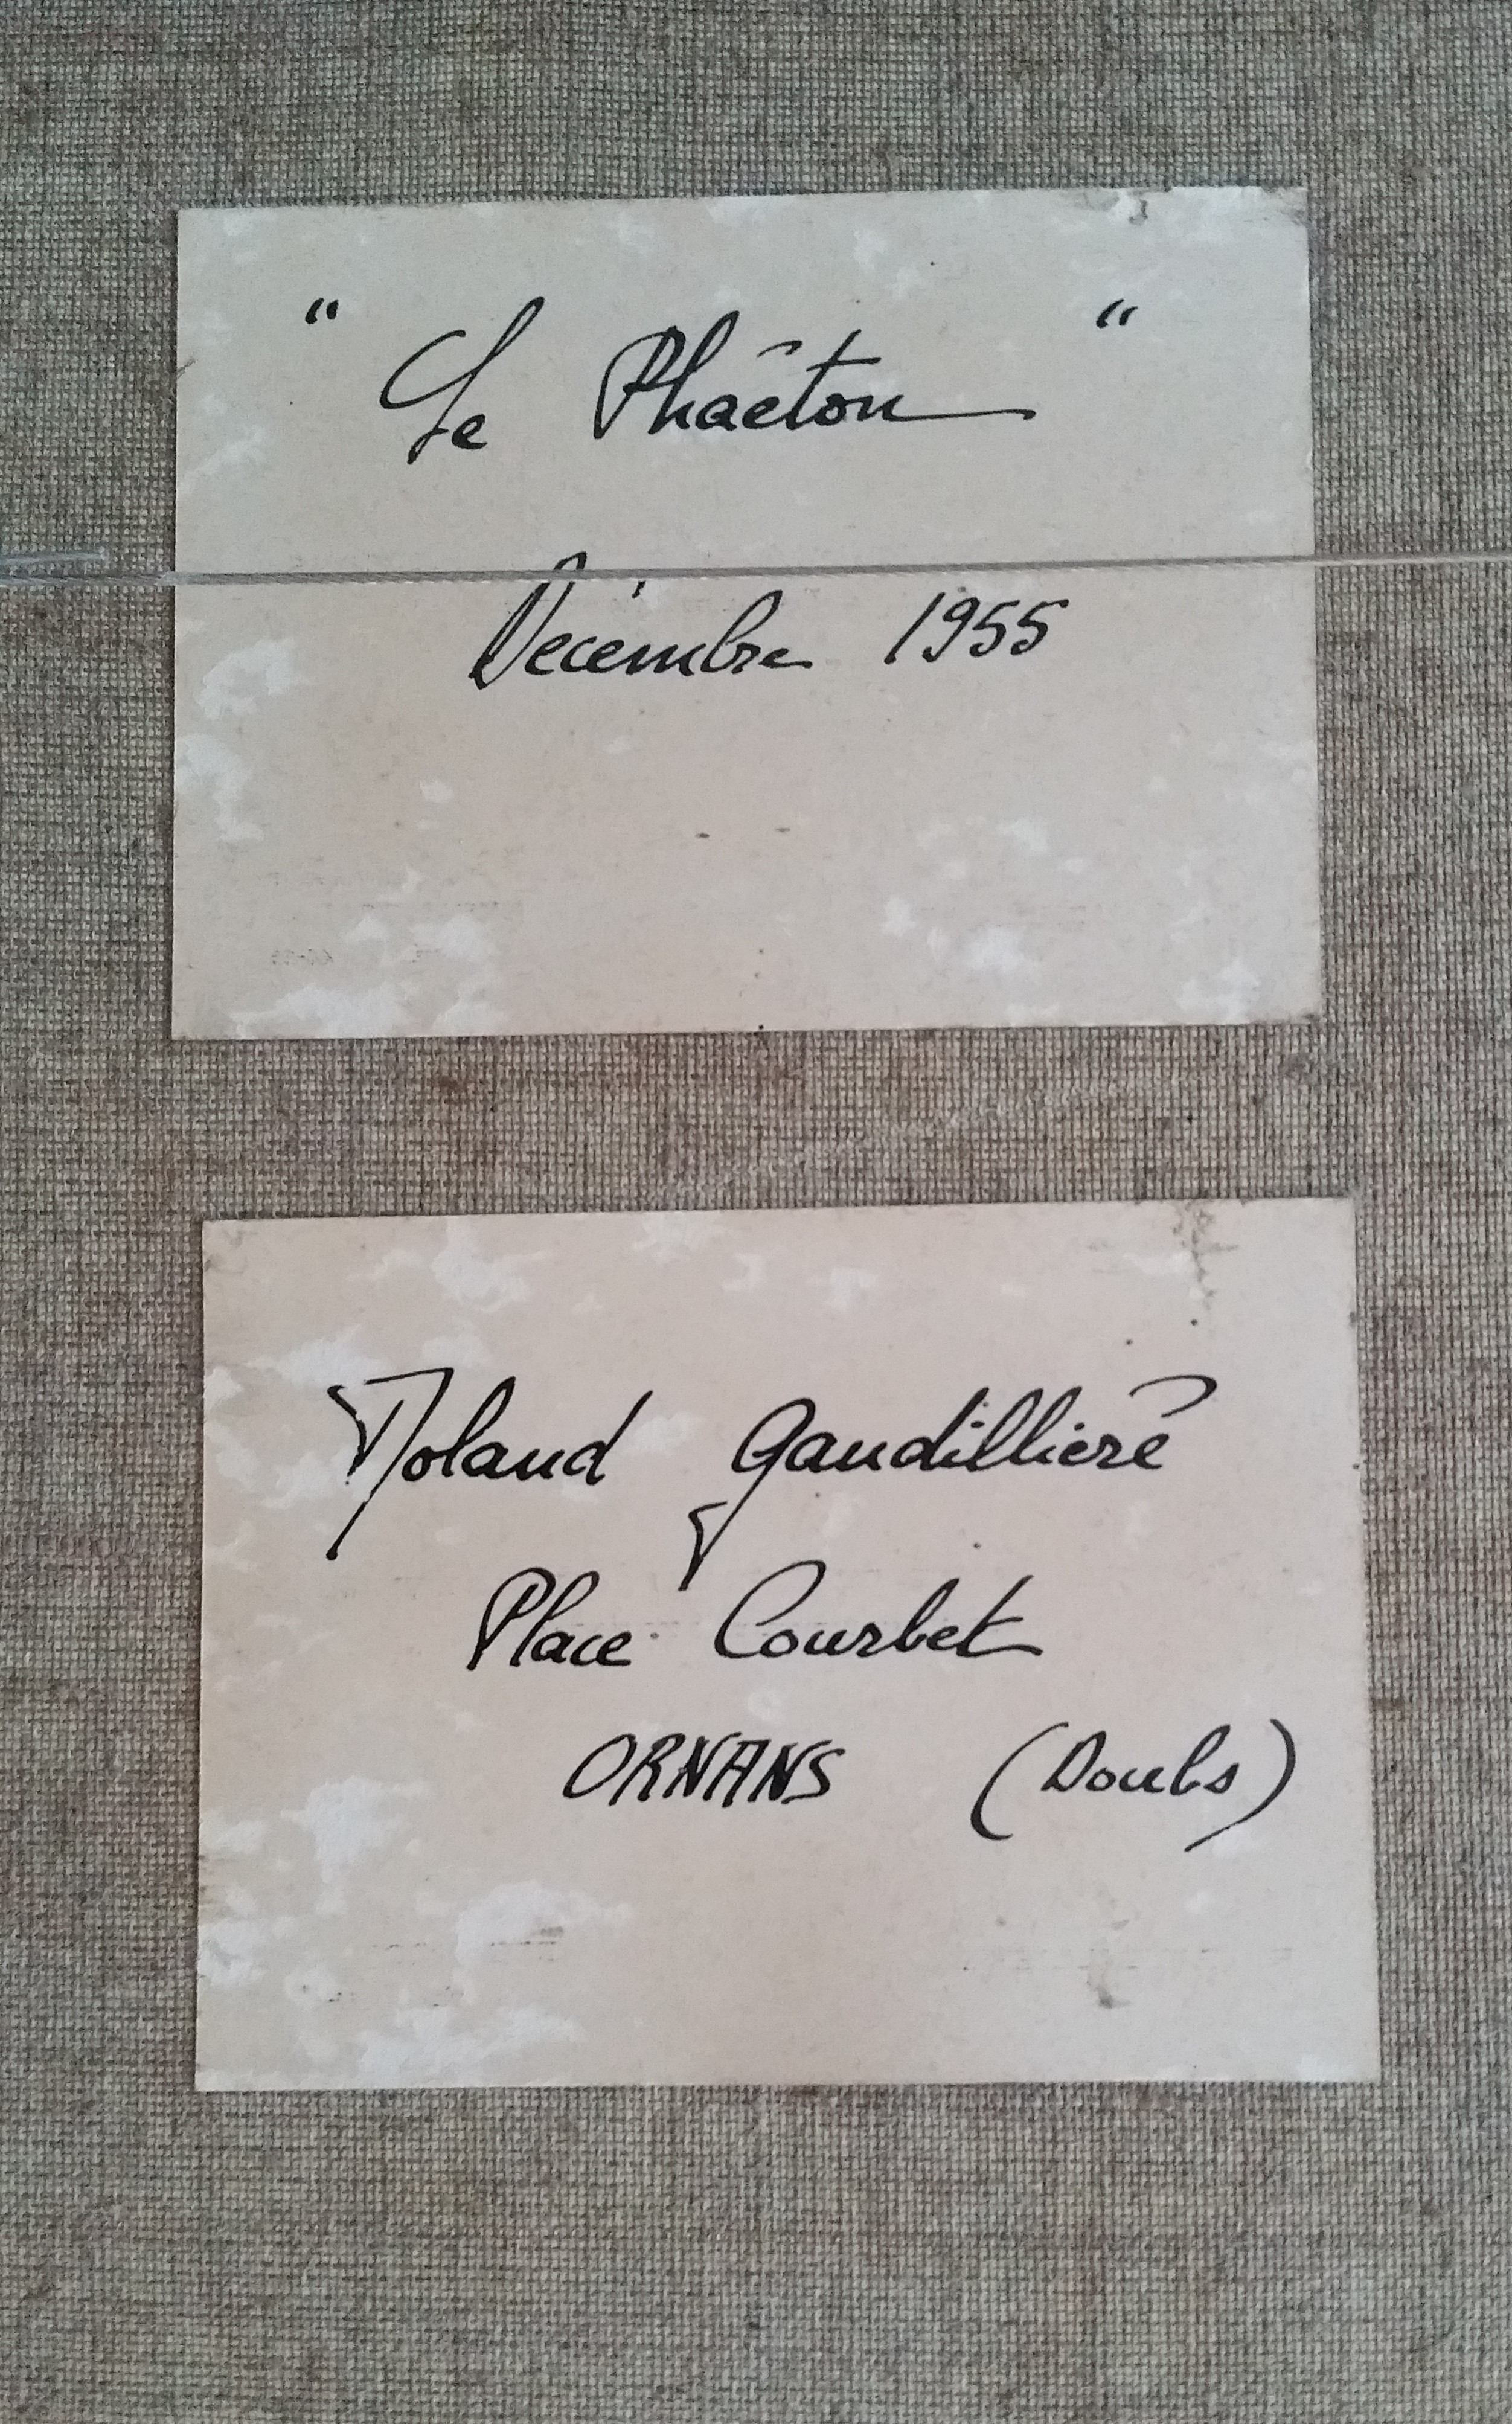 " Le Phaéton "
Décembre 1955
Roland Gaudillière
Place Courbet
ORNANS (Doubs)